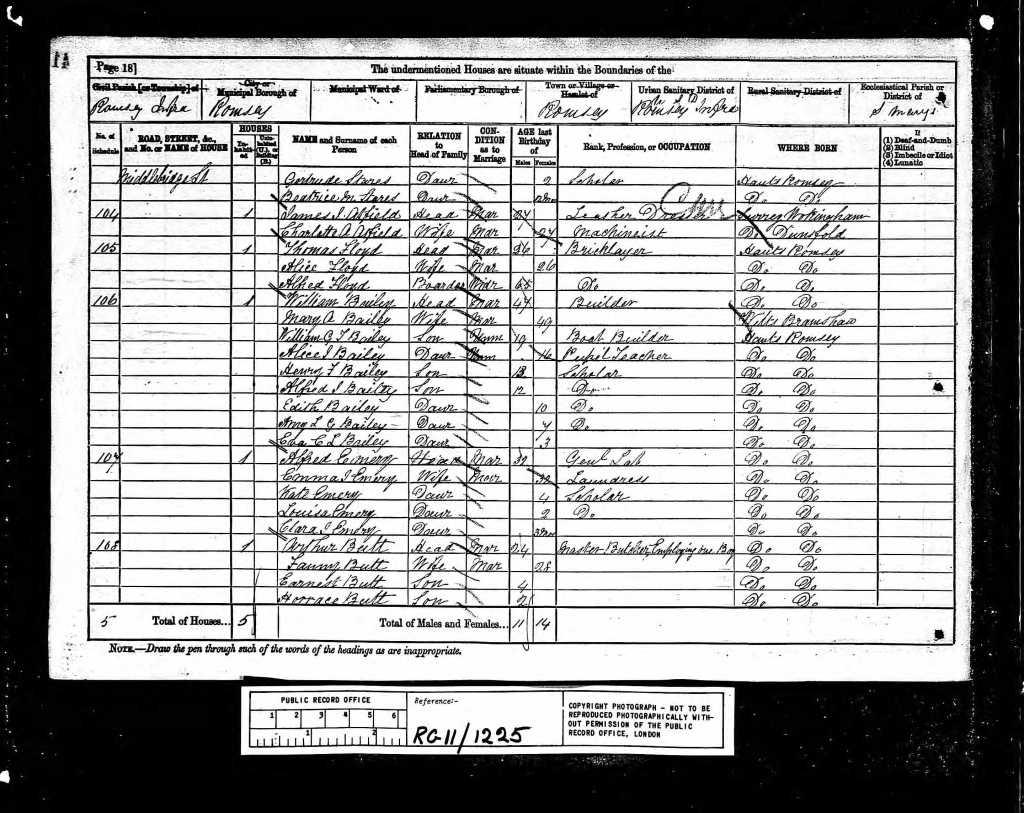 Page 18]
The undermentioned Houses are situate within the Boundaries of the
Civil Parish [or Township] of
City or Municipal Borough of
Municipal Ward of
Parliamentary Borough of
Town or Village or Hamlet of
Urban Sanitary District of
Rural Sanitary District of
Ecclesiastical Parish or District of
Romsey Infra
Romsey
Romsey
Romsey Infra
S Marys
No. of Schedule
ROAD, STREET, &c., and No. or NAME of HOUSE
HOUSES
Inhabited
Uninhabited (U.), or Building (B.)
NAME and Surname of each Person
RELATION to Head of Family
CONDITION as to Marriage
AGE last Birthday of
Males
Females
Rank, Profession, or OCCUPATION
WHERE BORN
If
(1) Deaf-and-Dumb
(2) Blind
(3) Imbecile or Idiot
(4) Lunatic
Middlebridge St Gertrude Stares Daur 2 Scholar Hants Romsey
Beatrice M Stares Daur Do Do
104 1 James J. Atfield Head Mar 27 Leather Surrey Wokingham
Charlott A Atfield Wife Mar 27 Machineist Do Dunsfold
105 1 Thomas Floyd Head Mar 26 Bricklayer Hants Romsey
Alice Floyd Wife Mar 26 Do Do
Alfred Floyd Boarder Widr 65 Do Do Do
106 1 William Bailey Head Mar 47 Builder Do Do
Mary A Bailey Wife Mar 49 Wilts Bramshaw
William G T Bailey Son Unm 19 Boat Builder Hants Romsey
Alice J Bailey Daur Unm 16 Pupil Teacher Do Do
Henry F Bailey Son 13 Scholar Do Do
Alfred J Bailey Son 12 Do Do Do
Edith Bailey Daur 10 Do Do Do
Amy L G Bailey Daur 7 Do Do Do
Eva C L Bailey Daur 3 Do Do
107 1 Alfred Emery Head Mar 32 Genl Lab Do Do
Emma J Emery Wife Mar 32 Laundress Do Do
Kate Emery Daur 4 Scholar Do Do
Louisa Emery Daur 2 Do Do Do
Clara J Emery Daur 3 Mo Do Do
108 1 Arthur Butt Head Mar 24 Master Butcher Employing one Boy Do Do
Fanny Butt Wife Mar 28 Do Do
Earnest Butt Son 4 Do Do
Horrace Butt Son 2 Do Do
5 Total of Houses... 5 Total of Males and Females... 11 14
NOTE.—Draw the pen through such of the words of the headings as are inappropriate.
PUBLIC RECORD OFFICE
1 2 3 4 5 6
1 2
Reference:-
RG11/1225
COPYRIGHT PHOTOGRAPH - NOT TO BE
REPRODUCED PHOTOGRAPHICALLY WITH-
OUT PERMISSION OF THE PUBLIC
RECORD OFFICE, LONDON